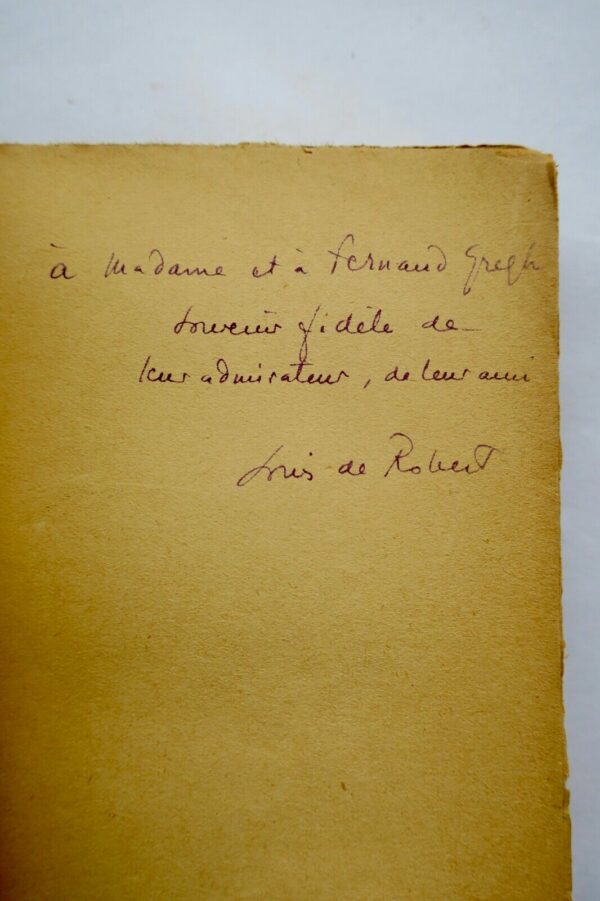 à Madame et à Fernand Gregh
souvenir fidèle de
leur admirateur, de leur ami
Louis de Robert